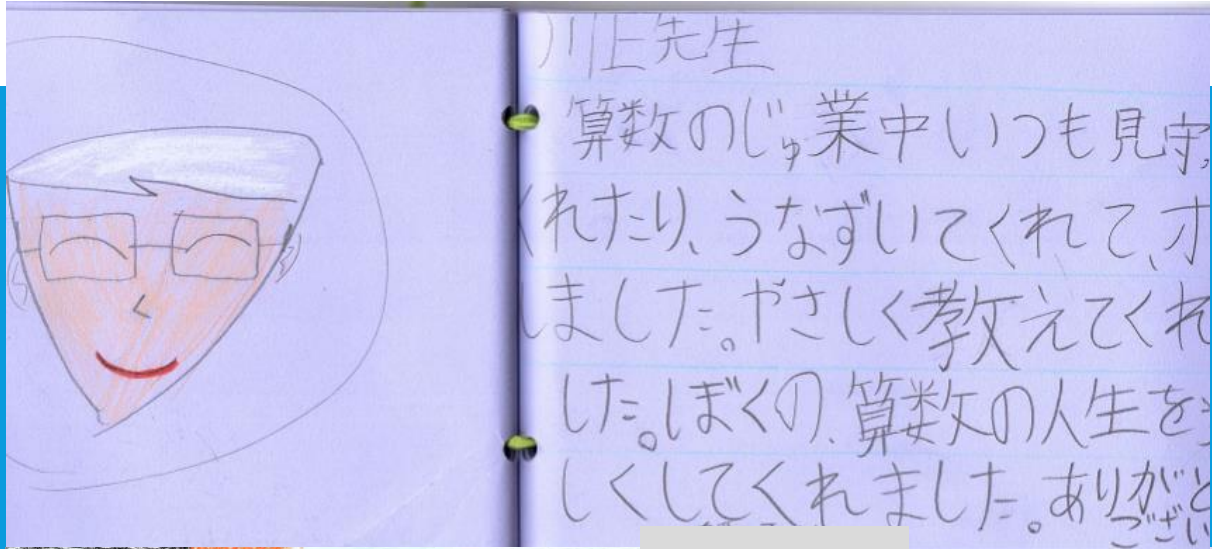 川上先生
算数のじゅ業中いつも見守
くれたり、うなずいてくれて、オ
しました。やさしく教えてくれ
した。ぼくの、算数の人生を
しくしてくれました。ありがと
ござい